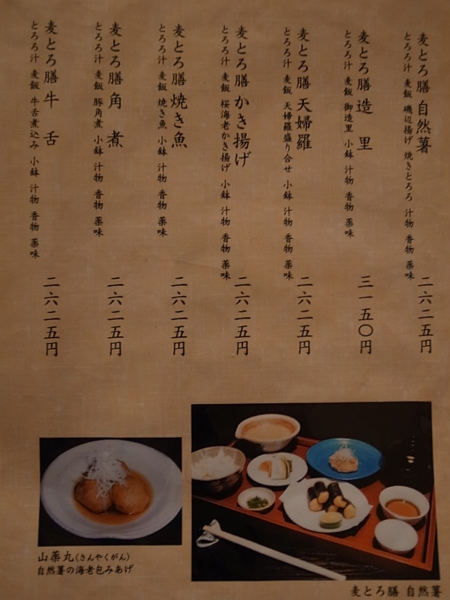 麦とろ膳 自然薯
とろろ汁 麦飯 磯辺揚げ 焼きとろろ 汁物 香物 薬味
二六二五円
麦とろ膳 造里
とろろ汁 麦飯 御造里 小鉢 汁物 香物 薬味
三一五〇円
麦とろ膳 天婦羅
とろろ汁 麦飯 天婦羅盛り合せ 小鉢 汁物 香物 薬味
二六二五円
麦とろ膳 かき揚げ
とろろ汁 麦飯 桜海老かき揚げ 小鉢 汁物 香物 薬味
二六二五円
麦とろ膳 焼き魚
とろろ汁 麦飯 焼き魚 小鉢 汁物 香物 薬味
二六二五円
麦とろ膳 角煮
とろろ汁 麦飯 豚角煮 小鉢 汁物 香物 薬味
二六二五円
麦とろ膳 牛舌
とろろ汁 麦飯 牛舌煮込み 小鉢 汁物 香物 薬味
二六二五円
山薬丸(さんやくがん)
自然薯の海老包みあげ
麦とろ膳 自然薯